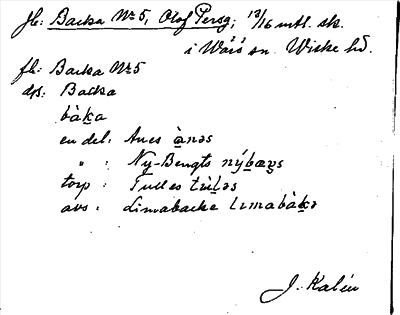 fb: Backa No 5, Olof Persg; 13/16 mtl. sk.
i Wårö sn. Wiske hd.
fb: Backa No 5
ds: Backa
bàk̲a
en del: Anes à̲nəs
" : Ny-Bengts
torp : Tulles tùl̲əs
avs : Limabacke lɩmabàk̲ə
J. Kalén